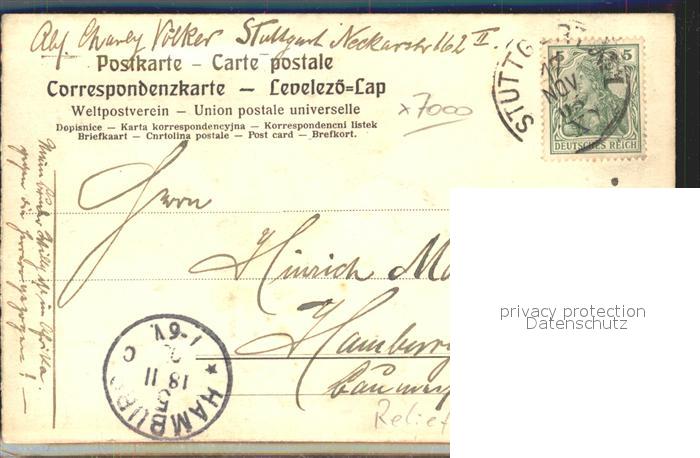 Abs. Charly Völker Stuttgart Neckarstr 162 II.
Postkarte – Carte postale
Correspondenzkarte – Levelező=Lap
Weltpostverein – Union postale universelle
Dopisnice – Karta korrespondencyjna – Korrespondencni listek
Briefkaart – Cnrtolina postale – Post card – Brefkort.
x7000
STUTTG
NOV
5 5
DEUTSCHES REICH
Herrn
Hinrich
Hamburg
Mein Bruder Willy ist in Afrika
gegen die
HAMBURG
18 11
05
1-6V.
Relief
privacy protection
Datenschutz